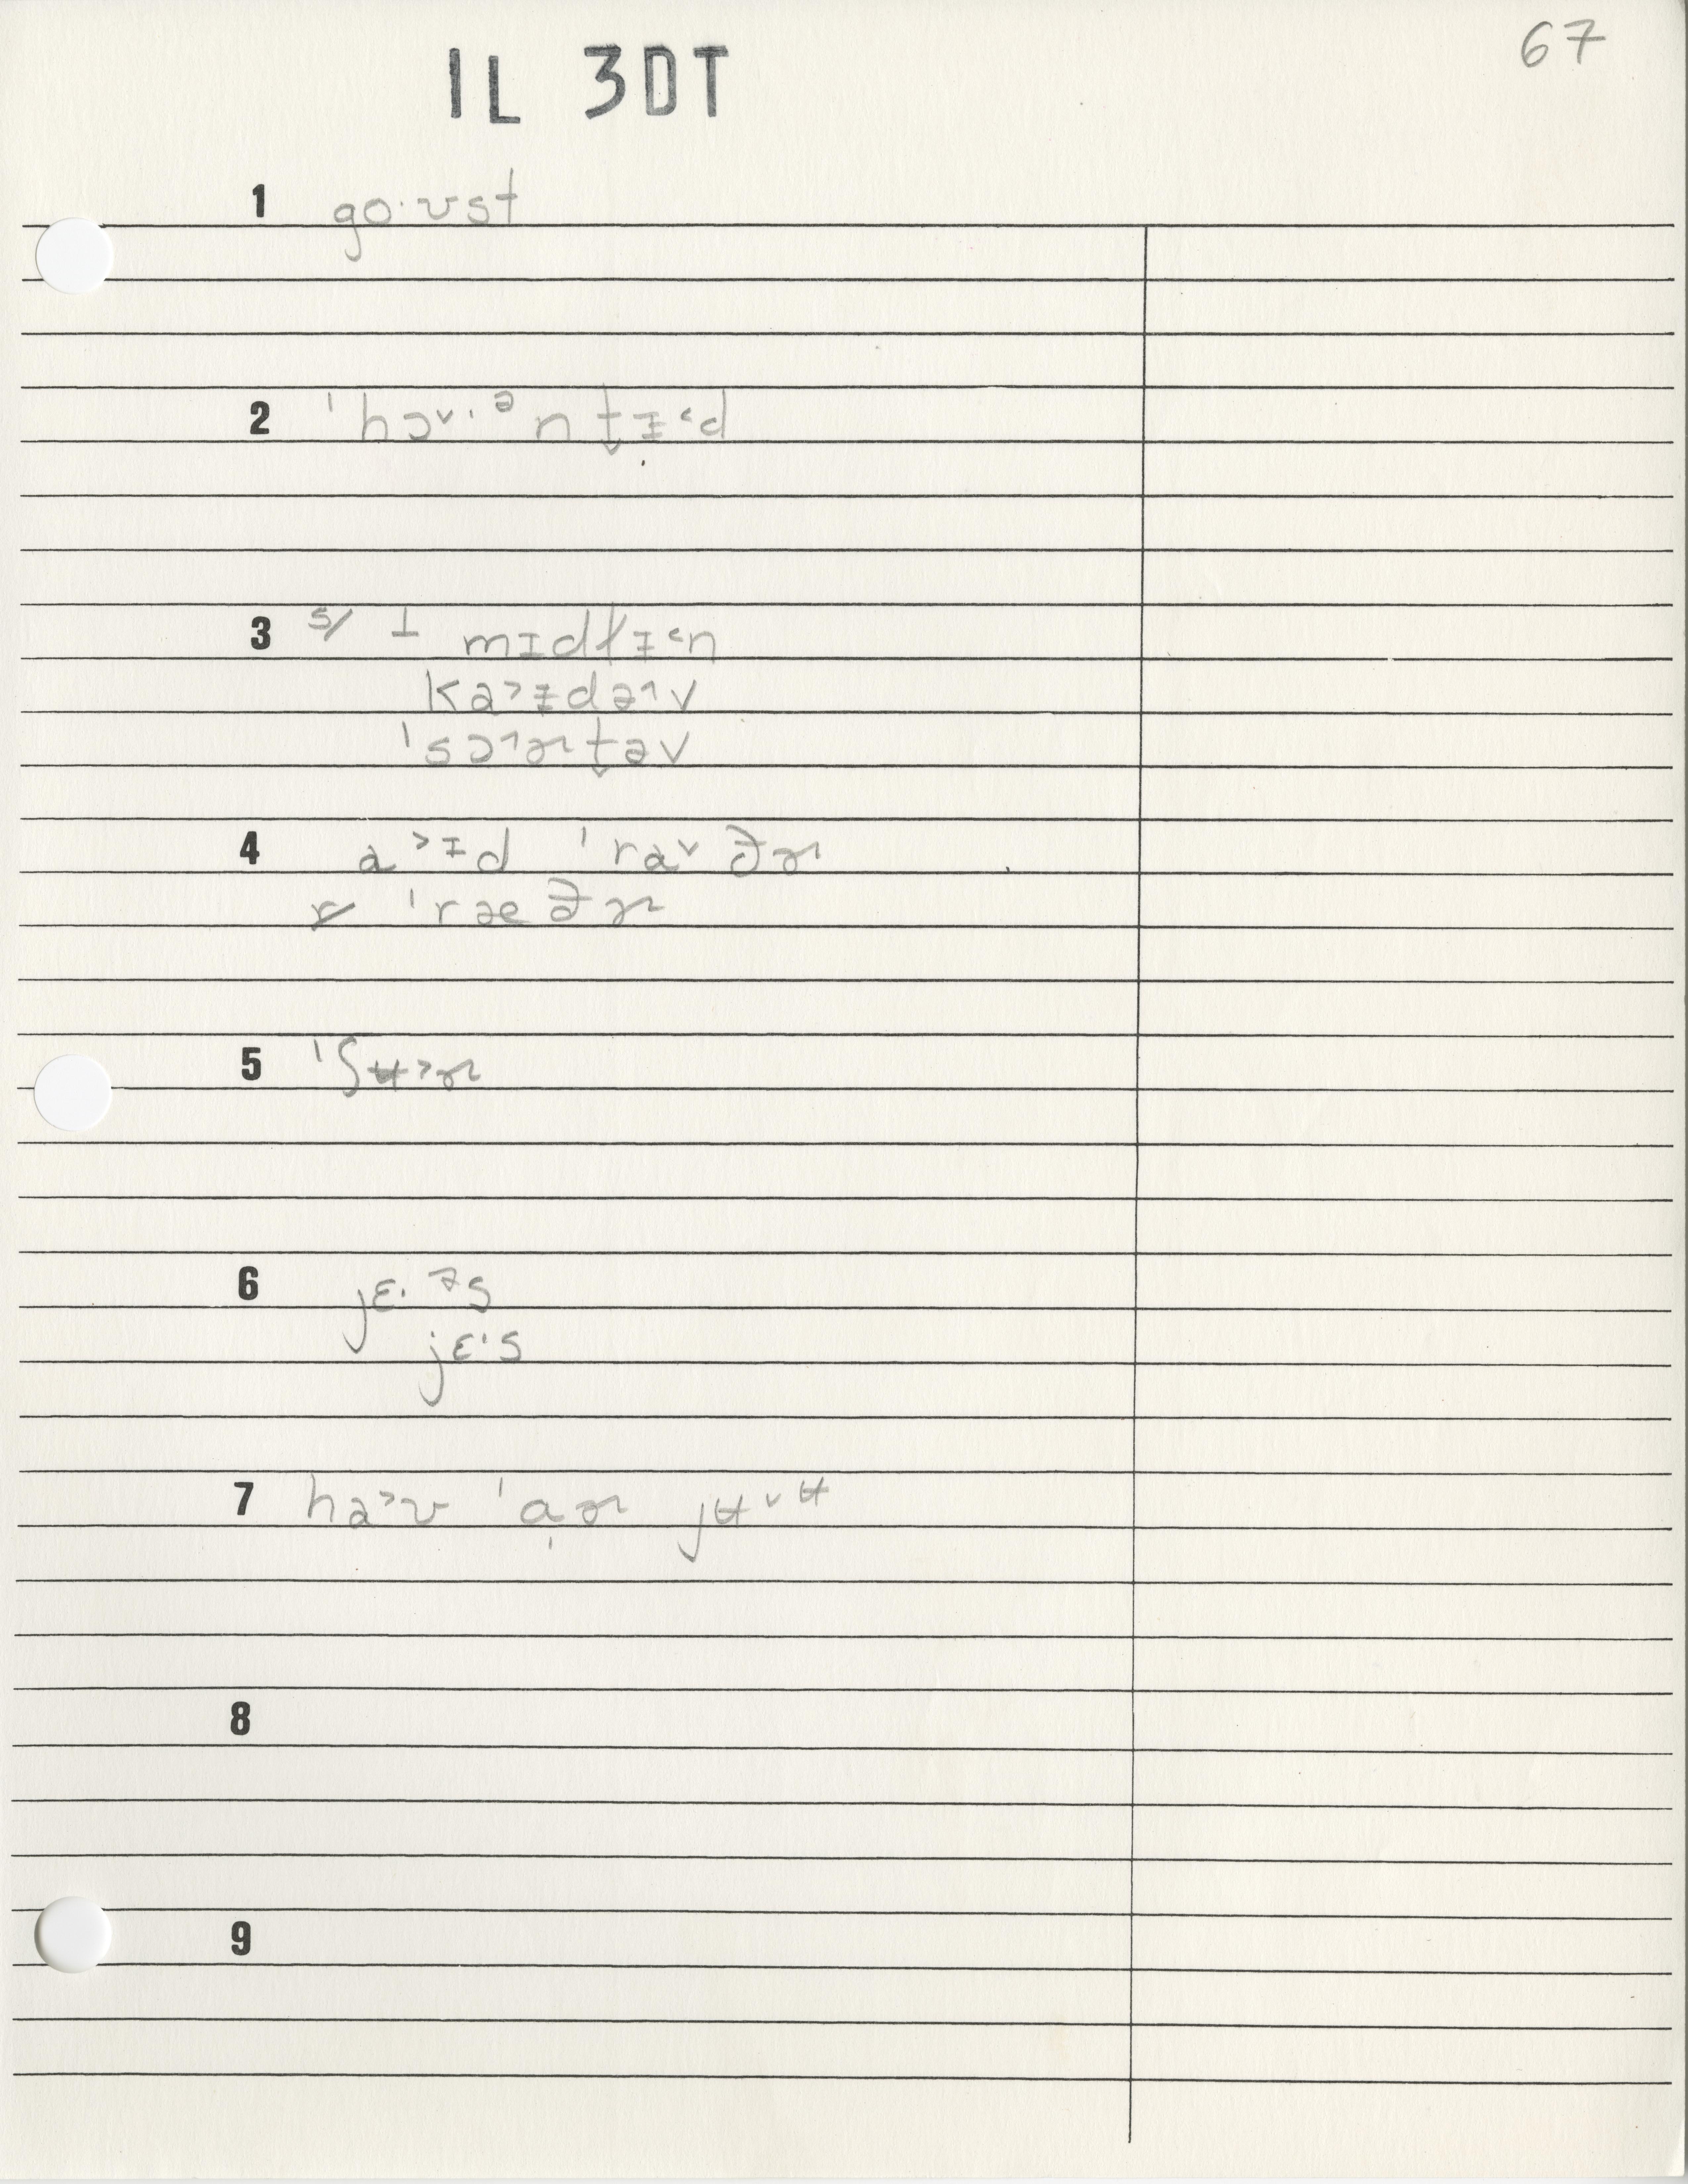 67
IL 3DT
1 go·ʊst
2 ˈhɔ˅·ᵊnt̬ɪ˂d
3 s/ ⊥ mɪdlɪ˂n
ka˃ɪdə˄v
ˈsɔ˄ɚt̬əv
4 a˃ɪd ˈra˅ðɚ
r/ ˈræðɚ
5 ˈʃʉ˃ɚ
6 jɛ·ᵊs
jɛ·s
7 ha˃ʊ ˈɑ̩ɚ jʉ˅ᶶ
8
9